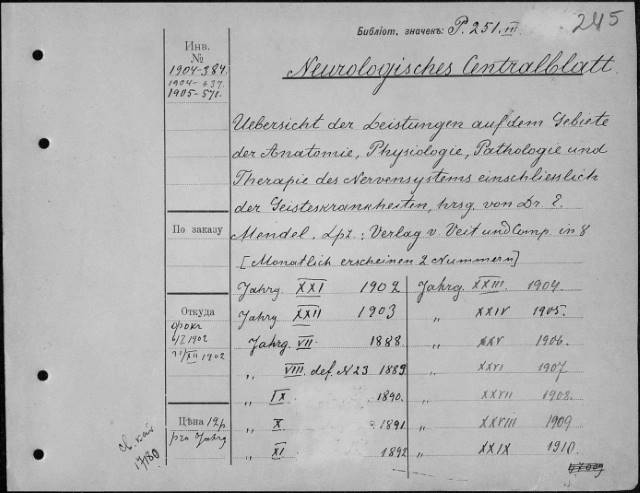 Библіот. значекъ: P. 251.III
245
Инв.
№
1904-384.
1904-637.
1905-571.
Neurologisches Centralblatt.
Uebersicht der Leistungen auf dem Gebiete
der Anatomie, Physiologie, Pathologie und
Therapie des Nervensystems einschliesslich
der Geisteskrankheiten, hrsg. von Dr. E.
Mendel. Lpz.: Verlag v. Veit und Comp. in 8
[Monatlich erscheinen 2 Nummern]
По заказу
Откуда
1902
XII 1902
Цѣна 12р
pro Jahrg
17180
Jahrg. XXI 1902
Jahrg XXII 1903
Jahrg. VII 1888.
„ VIII. def. N 23 1889
„ IX 1890.
„ X 1891
„ XI 1892
Jahrg. XXIII. 1904.
„ XXIV 1905.
„ XXV 1906.
„ XXVI 1907
„ XXVII 1908.
„ XXVIII 1909
„ XXIX 1910.